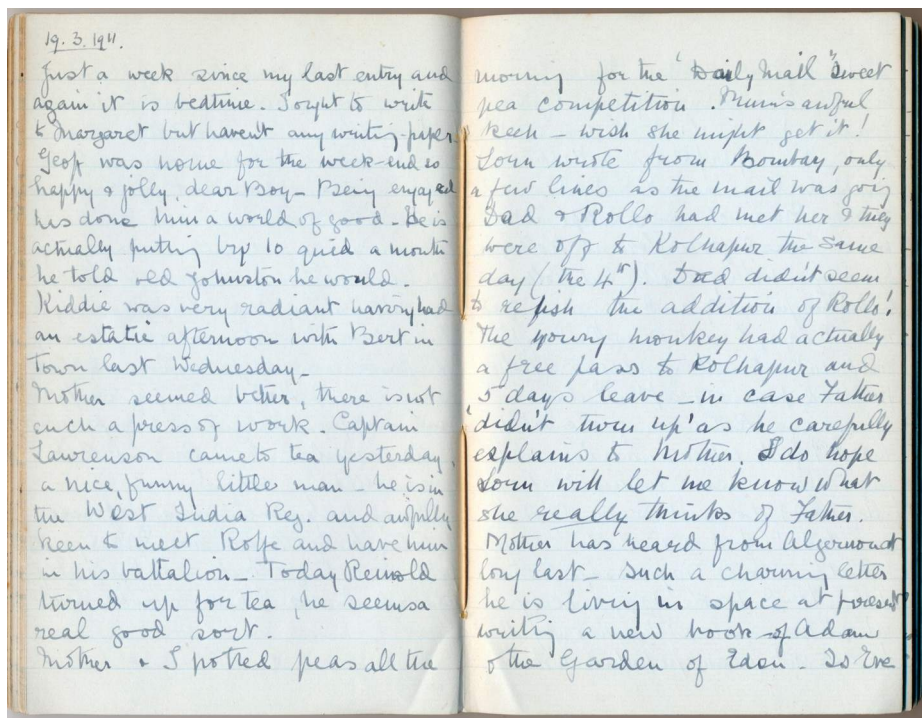 19.3.1911.
Just a week since my last entry and
again it is bedtime. I ought to write
to Margaret but havent any writing-paper
Geoff was home for the week-end so
happy & jolly, dear Boy - Being engaged
has done him a world of good - He is
actually putting by 10 quid a month
he told old Johnston he would.
Kiddie was very radiant having had
an estatic afternoon with Bert in
Town last Wednesday -
Mother seemed better, there is not
such a press of work. Captain
Lawrenson came to tea yesterday,
a nice, funny little man - he is in
the West India Reg. and awfully
keen to meet Roffe and have him
in his battalion - Today Reinold
turned up for tea, he seems a
real good sort.
Mother & I potted peas all the
morning for the "Daily Mail" Sweet
pea competition. Mum's awful
keen - wish she might get it!
Lorn wrote from Bombay, only
a few lines as the mail was going
Dad & Rollo had met her & they
were off to Kolhapur the same
day (the 4th). Dad didn't seem
to relish the addition of Rollo!
The young monkey had actually
a free pass to Kolhapur and
5 days leave - in case Father
'didn't turn up' as he carefully
explains to Mother. I do hope
Lorn will let me know what
she really thinks of Father.
Mother has heard from Algernon at
long last - Such a charming letter
he is living in space at present
writing a new book of Adam
& the Garden of Eden. So Eve